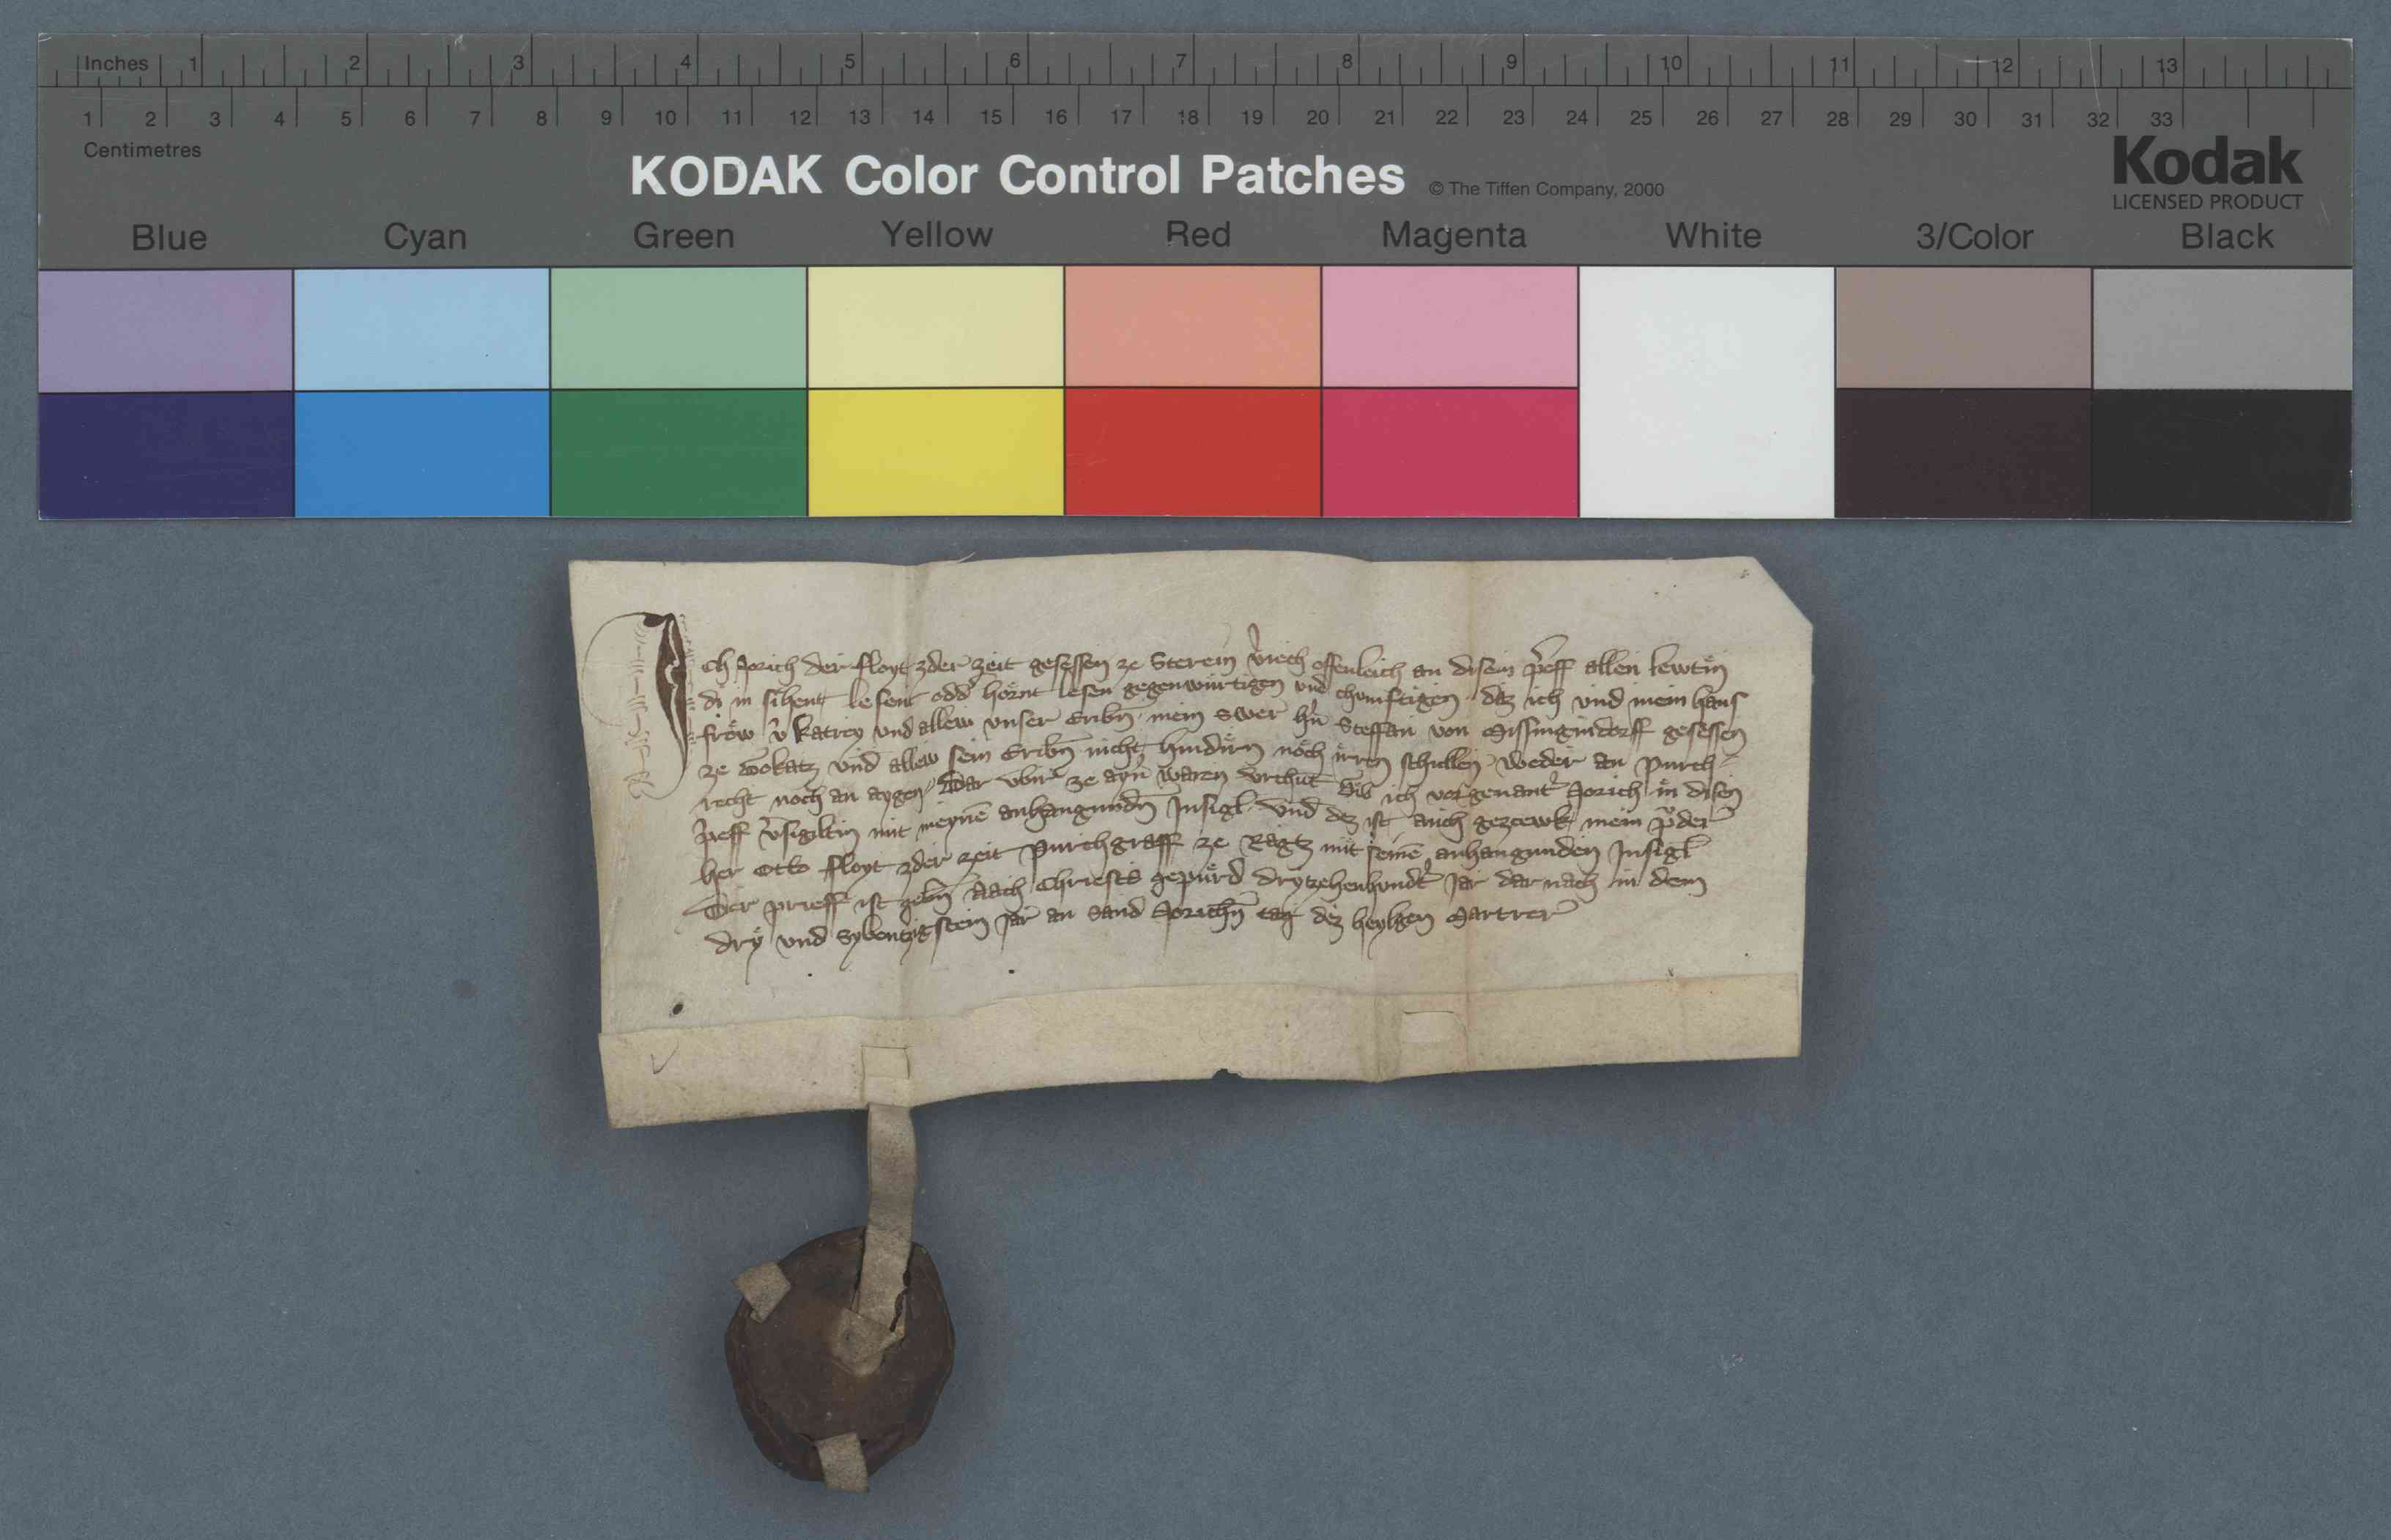 Inches 1 2 3 4 5 6 7 8 9 10 11 12 13
1 2 3 4 5 6 7 8 9 10 11 12 13 14 15 16 17 18 19 20 21 22 23 24 25 26 27 28 29 30 31 32 33
Centimetres
KODAK Color Control Patches © The Tiffen Company, 2000
Kodak
LICENSED PRODUCT
Blue Cyan Green Yellow Red Magenta White 3/Color Black
Ich Jorich der floyt zder zeit gesessen ze Sterein v̾iech offenleich an disem p̾eff allen lewten
di in sehent lesent od̾ hörnt lesen gegenwürtigen vnd chumftigen daz ich vnd mein haus
fröw v̾ katrey vnd allew vnser Eribn̄ mein swer h̾n Steffan von Missingendorff gesessen
ze Dokatz vnd allew sein Eribn̄ nicht hindürn noch irren schullen weder an purch
recht noch an aygen Dar vbir ze ayn̄ waren vrchūt Gib ich vorgenant̾ Jorich in disen
p̾eff v̾sigilten mit meynē anhangundn̄ Insigl vnd dez ist auch gezewk mein p̾der
her Otto floyt zder zeit purchgraff ze Ragtz mit seinē anhangunden Insigl
Der prieff ist gebn̄ Nach Christs gepürd drytzehenhundt̾ Jar dar nach in dem
dry vnd Sybentzigstein Jar an Sand Jorichn̄ tag dez heyligen Martrer